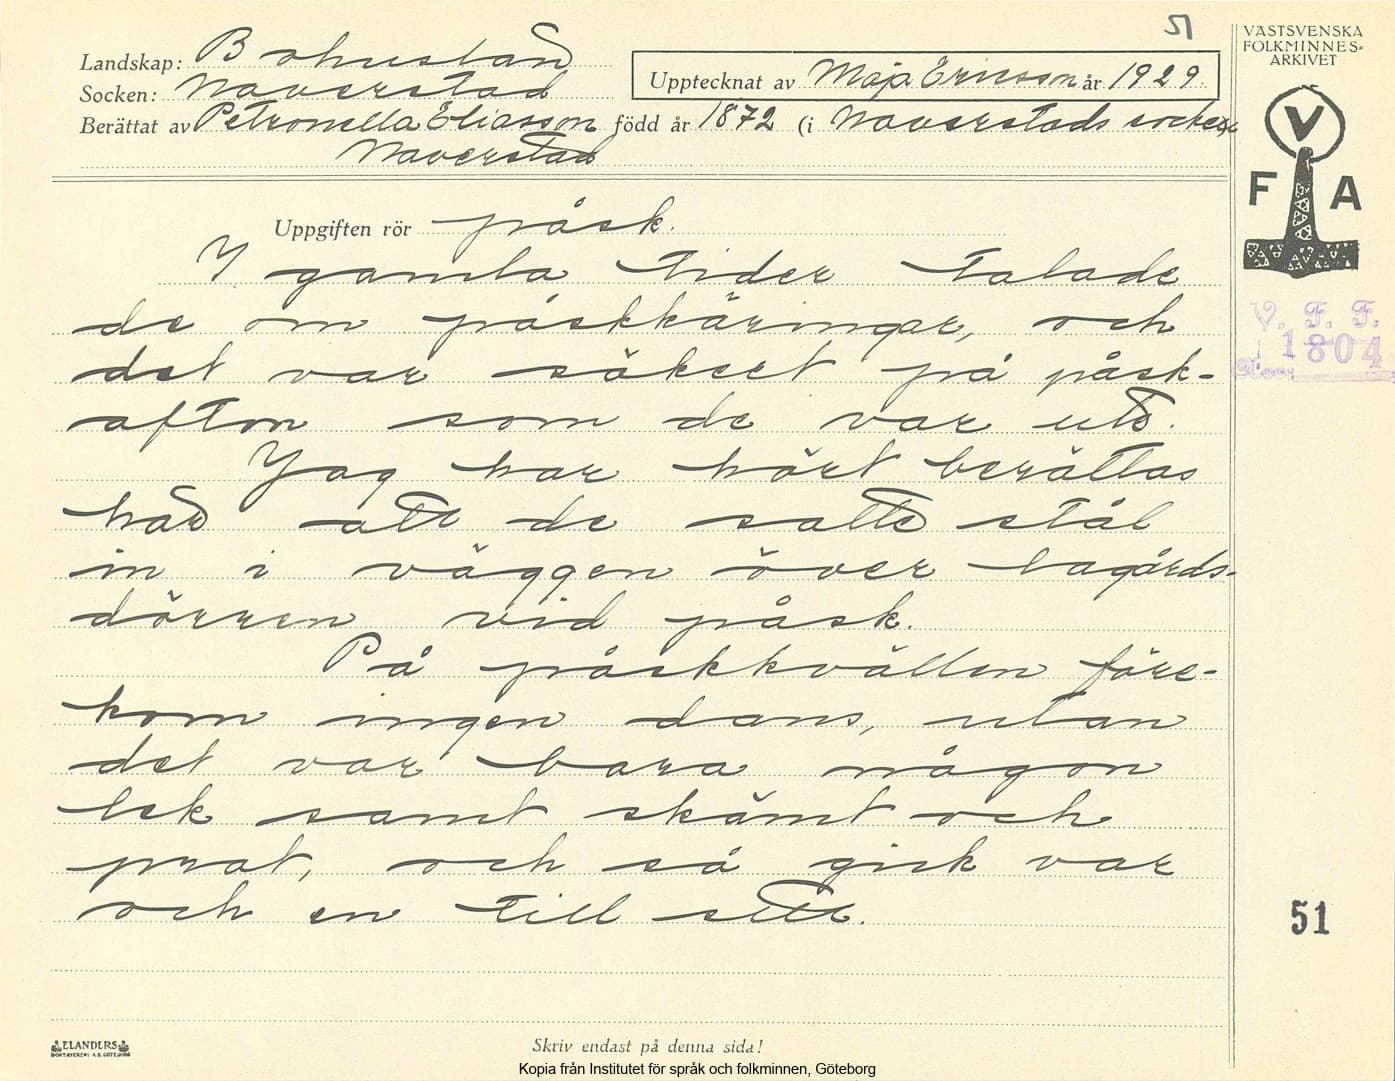 51
VÄSTSVENSKA
FOLKMINNES-
ARKIVET
Landskap: Bohuslän
Socken: Naverstad
Upptecknat av Maja Ericsson år 1929.
Berättat av Petronella Eliasson född år 1872 (i Naverstads socken
Naverstad
V
F A
Uppgiften rör påsk.
I gamla tider talade
de om påskkäringar, och
det var säkert på påsk-
afton som de var ute.
Jag har hört berättas
hur att de satte stål
in i väggen över lagårds-
dörren vid påsk.
På påskkvällen före-
kom ingen dans, utan
det var bara någon
lek samt skämt och
prat, och så gick var
och en till sitt.
V. F. F.
1804
51
ELANDERS
BOKTRYCKERI A.B. GÖTEBORG
Skriv endast på denna sida!
Kopia från Institutet för språk och folkminnen, Göteborg